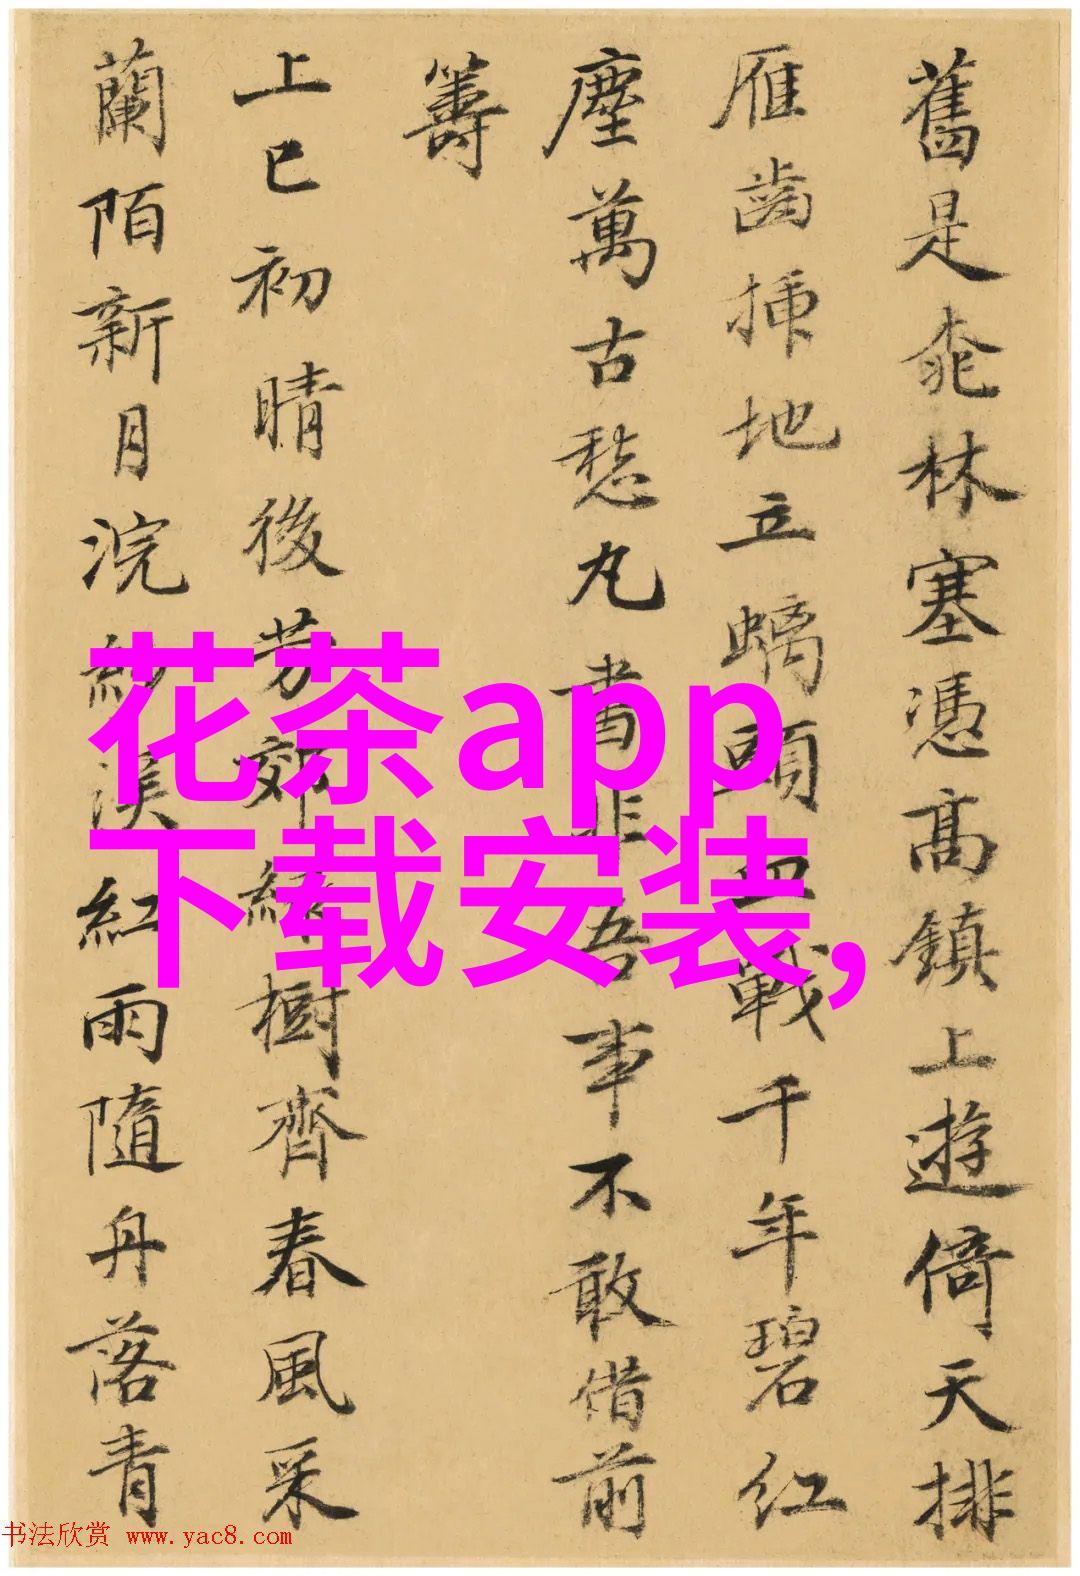 舊是桃林塞憑高鎮上遊倚天排
雁齒插地立螭頭血戰千年碧紅
塵萬古愁丸書非吾事不敢借前
籌
上巳初晴後芳郊緑樹齊春風采
蘭陌新月浣紗溪紅雨隨舟落青
花茶app
下载安装,
书法欣赏 www.yac8.com